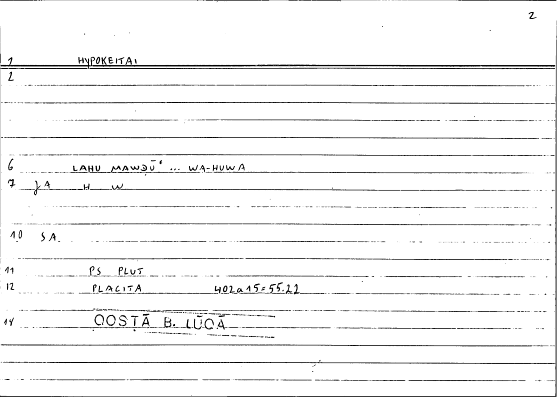 2
1 HYPOKEITAI
2
6 LAHU MAWḌŪʿ ... WA-HUWA
7 JA H W
10 SA.
11 PS PLUT
12 PLACITA 402a15=55.22
14 QOSṬĀ B. LŪQĀ